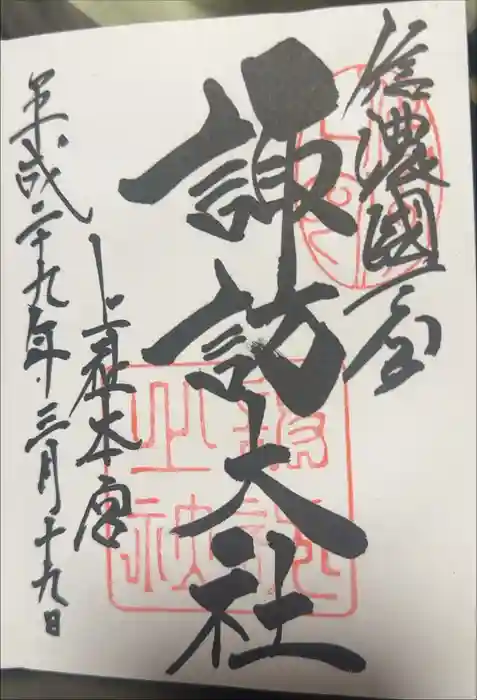 信濃國一宮
諏訪大社
上社本宮
平成二十九年三月十九日